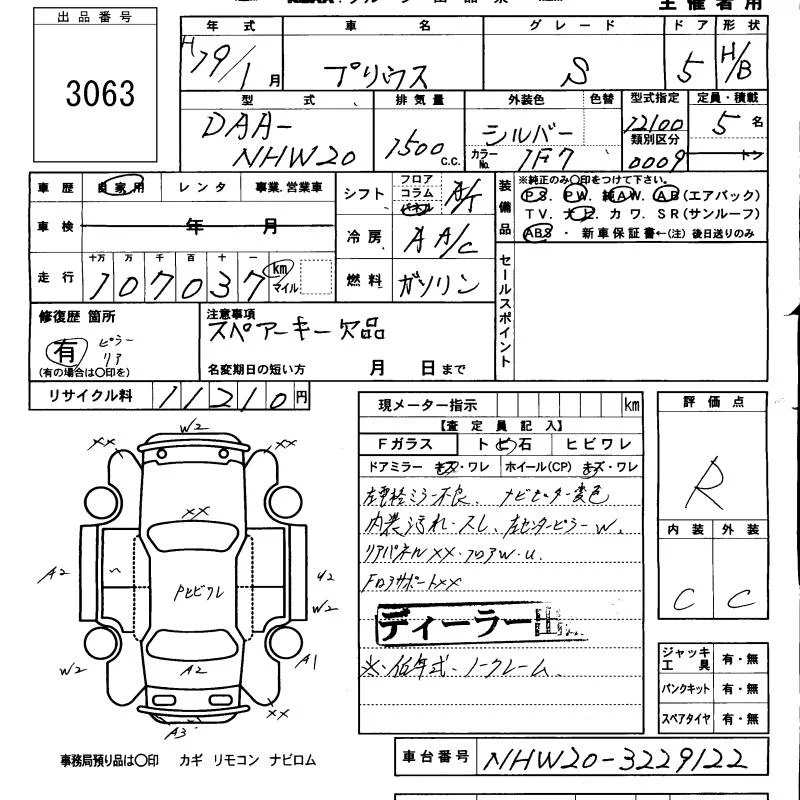 出品番号
3063
主催者用
年式 車名 グレード ドア 形状
H19/1月 プリウス S 5 H/B
型式 排気量 外装色 色替 型式指定 定員・積載
DAA-NHW20 1500c.c. シルバー 12100 5名
カラーNo. 1F7 類別区分 0009 トン
車歴 自家用 レンタ 事業.営業車
シフト フロア コラム パネル A/T
車検 年 月
冷房 A A/C
走行 十万 万 千 百 十 一
107037 km マイル
燃料 ガソリン
装備品 ※純正のみ〇印をつけて下さい。
PS. PW. 純AW. AB(エアバック)
TV. 大上 カワ. SR(サンルーフ)
ABS・新車保証書←(注)後日送りのみ
セールスポイント
修復歴 箇所
有 ピラー リア
(有の場合は〇印を)
注意事項
スペアーキー欠品
名変期日の短い方 月 日まで
リサイクル料 11210円
現メーター指示 km
【査定員記入】
Fガラス トビ石 ヒビワレ
ドアミラー キズ・ワレ ホイール(CP) キズ・ワレ
左電格ミラー不良、ナビモニター変色
内装汚れ・スレ、左センターピラーW、
リアパネルXX・フロアW・U、
FコアサポートXX
ディーラー出
※低年式・ノークレーム
評価点
R
内装 外装
C C
ジャッキ工具 有・無
パンクキット 有・無
スペアタイヤ 有・無
W2
XX XX
XX
A2 Pヒビワレ U2
W2
W2 A2 A1
XX
A3
事務局預り品は〇印 カギ リモコン ナビロム
車台番号 NHW20-3229122